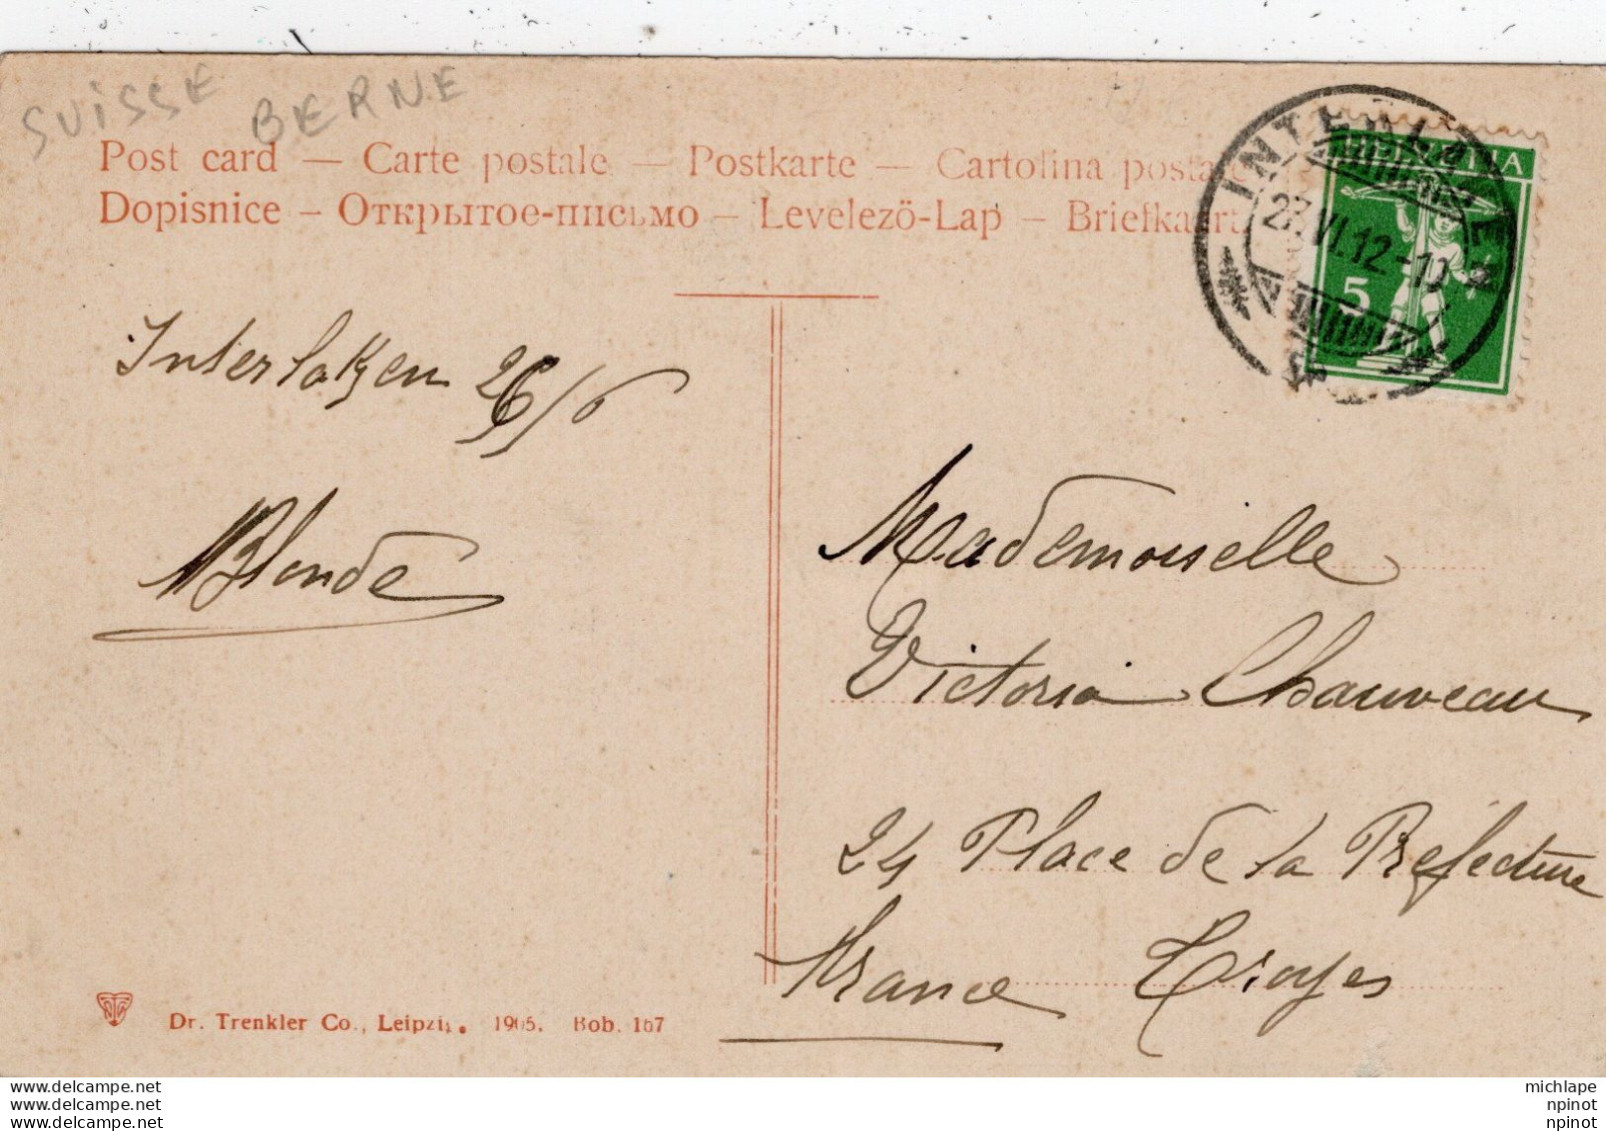 SUISSE BERNE
Post card — Carte postale — Postkarte — Cartolina postale
Dopisnice – Открытое-письмо – Levelezö-Lap – Briefkaart.
HELVETIA
5
INTERLAKEN
27.VI.12.-10
Interlaken 26/6
Blonde
Mademoiselle
Victoria Chauveau
24 Place de la Prefecture
France Troyes
Dr. Trenkler Co., Leipzig. 1905. Bob. 167
delcampe.net
delcampe.net
delcampe.net
michlape
npinot
npinot